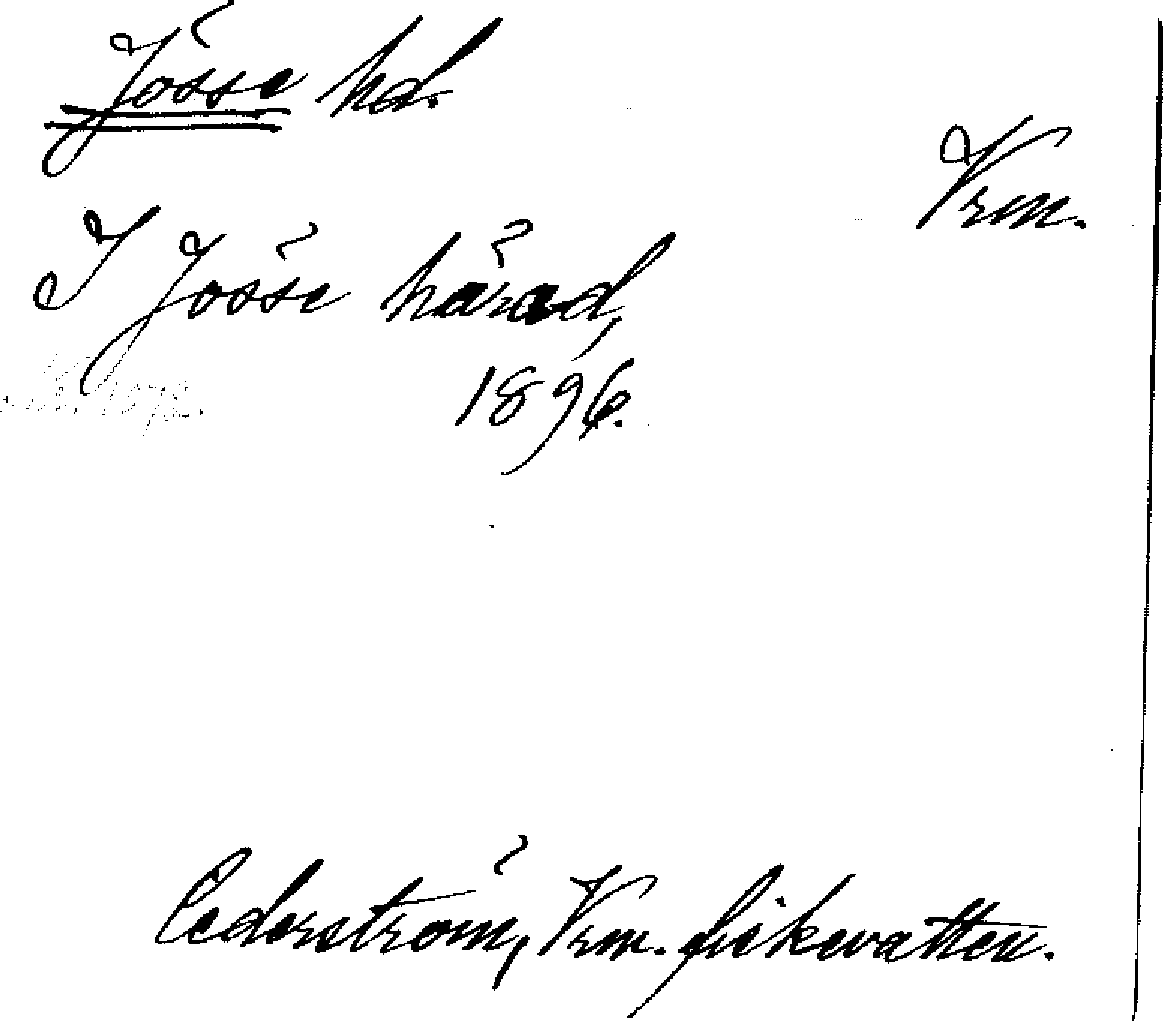 Jösse hd.
Vrm.
I Jösse härad,
1896.
Cederström, Vrm. fiskevatten.